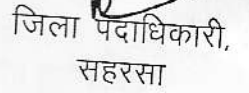 जिला पदाधिकारी,
सहरसा